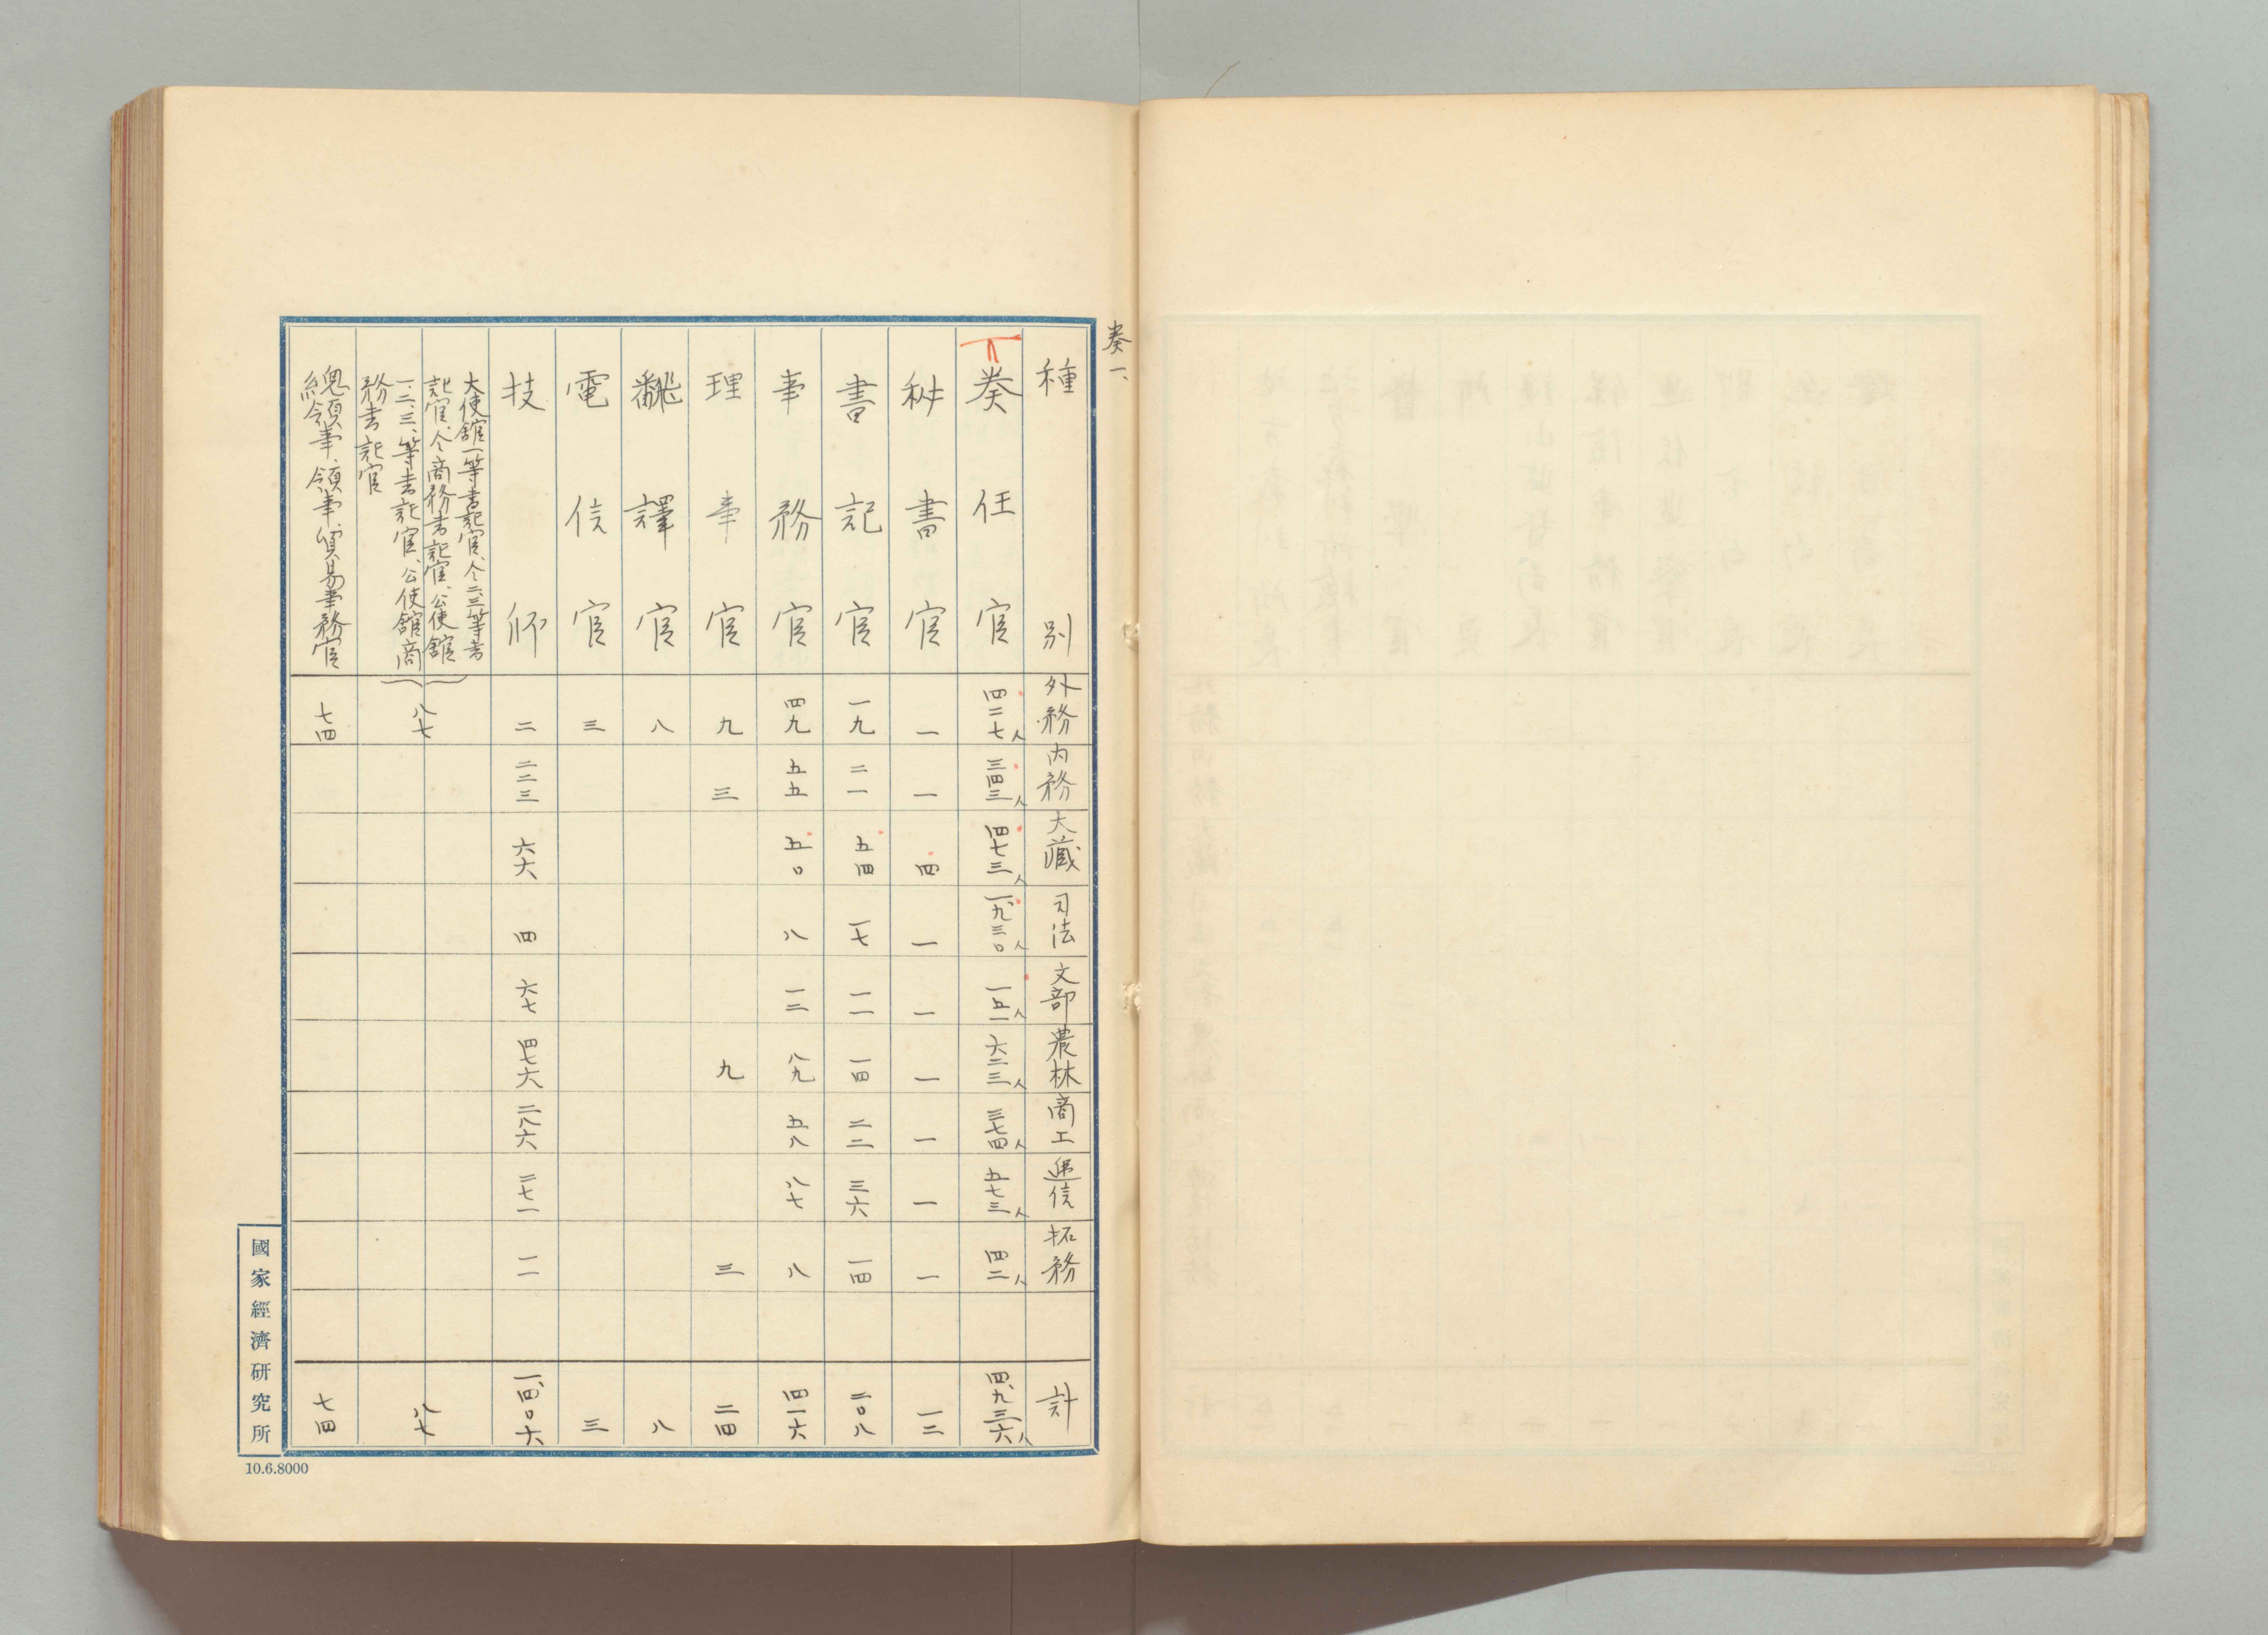 奏一、
種別 外務 内務 大藏 司法 文部 農林 商工 逓信 拓務 計
奏任官 四二七人 三四三人 四七三人 一、九三〇人 一五一人 六二三人 三七四人 五七三人 四二人 四、九三六人
秘書官 一 一 四 一 一 一 一 一 一 一二
書記官 一九 二一 五四 一七 一一 一四 二二 三六 一四 二〇八
事務官 四九 五五 五〇 八 一二 八九 五八 八七 八 四一六
理事官 九 三 九 三 二四
飜譯官 八 八
電信官 三 三
技師 二 二二三 六六 四 六七 四七六 二八六 二七一 一一 一、四〇六
大使館一等書記官、仝二、三等書
記官、仝商務書記官、公使館
一、二、三、等書記官、公使館商
務書記官 八七 八七
總領事、領事、貿易事務官 七四 七四
國家經濟研究所
10.6.8000